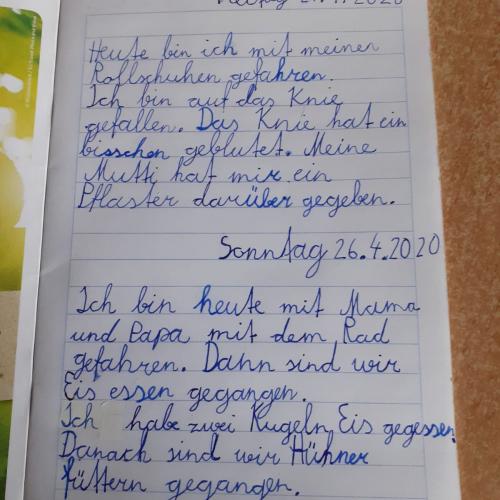 Heute bin ich mit meinen
Rollschuhen gefahren.
Ich bin auf das Knie
gefallen. Das Knie hat ein
bisschen geblutet. Meine
Mutti hat mir ein
Pflaster darüber gegeben.
Sonntag 26.4.2020
Ich bin heute mit Mama
und Papa mit dem Rad
gefahren. Dann sind wir
Eis essen gegangen.
Ich habe zwei Kugeln Eis gegessen.
Danach sind wir Hühner
füttern gegangen.